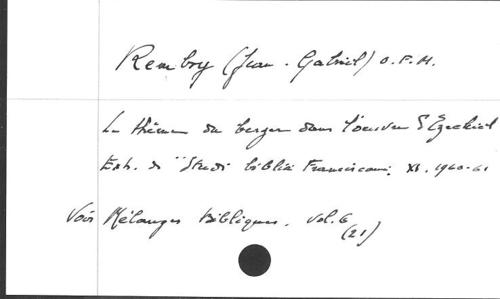 Rembry (Jean-Gabriel) O.F.M.
Le thème du berger dans l'oeuvre d'Ezechiel
Ext. de "Studi biblici Franciscani, XI. 1960-61
Voir Mélanges bibliques. vol. 6
(21)